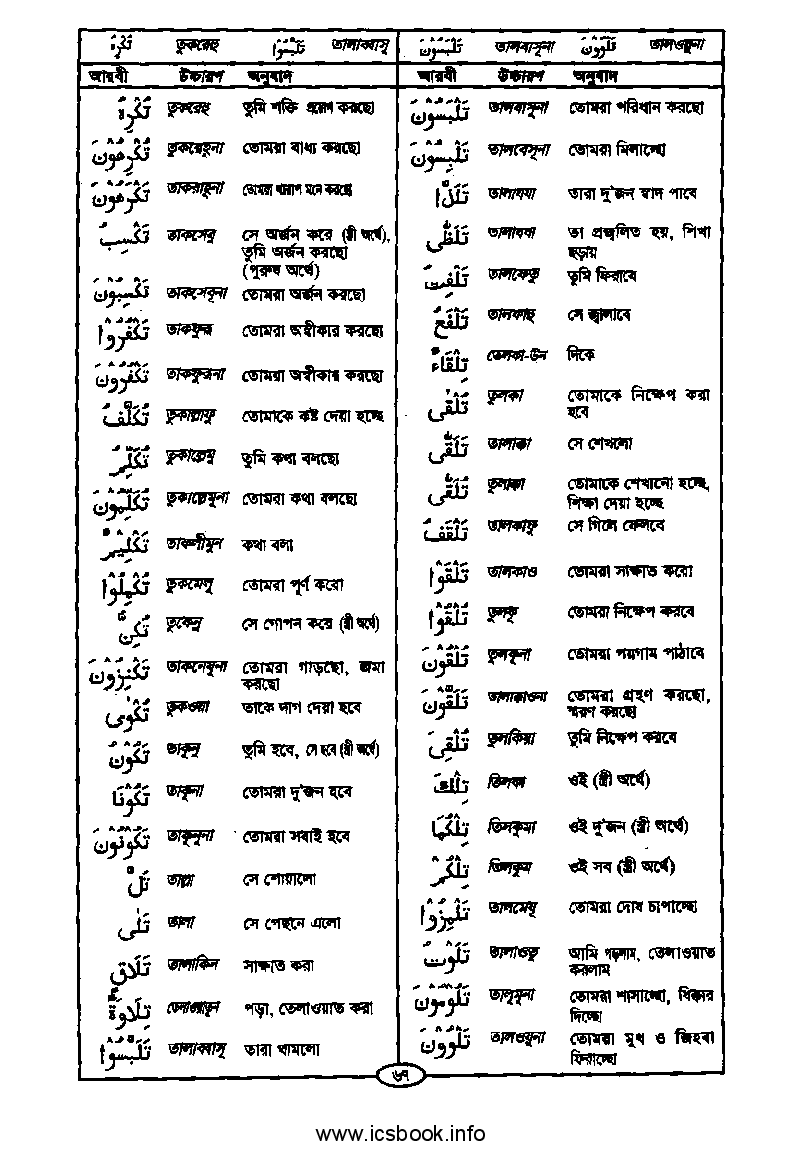 تُكْرِهُ তুকরেহু تَلَبَّسُوْا তালাব্বাসূ
تَلْبَسُوْنَ তালবাসূনা تَلْوٗنَ তালওয়ূনা
আরবী উচ্চারণ অনুবাদ
تُكْرِهُ তুকরেহু তুমি শক্তি প্রয়োগ করছো
تُكْرِهُوْنَ তুকরেহূনা তোমরা বাধ্য করছো
تَكْرَهُوْنَ তাকরাহূনা তোমরা খারাপ মনে করছো
تَكْسِبُ তাকসেবু সে অর্জন করে (স্ত্রী অর্থে),
তুমি অর্জন করছো
(পুরুষ অর্থে)
تَكْسِبُوْنَ তাকসেবূনা তোমরা অর্জন করছো
تَكْفُرُوْا তাকফুরূ তোমরা অস্বীকার করছো
تَكْفُرُوْنَ তাকফুরূনা তোমরা অস্বীকার করছো
تُكَلَّفُ তুকাল্লাফু তোমাকে কষ্ট দেয়া হচ্ছে
تُكَلِّمُ তুকাল্লেমু তুমি কথা বলছো
تُكَلِّمُوْنَ তুকাল্লেমূনা তোমরা কথা বলছো
تَكْلِيْمٌ তাকলীমুন কথা বলা
تُكْمِلُوْا তুকমেলূ তোমরা পূর্ণ করো
تُكِنُّ তুকেন্নু সে গোপন করে (স্ত্রী অর্থে)
تَكْنِزُوْنَ তাকনেযূনা তোমরা গাড়ছো, জমা
করছো
تُكْوٰى তুকওয়া তাকে দাগ দেয়া হবে
تَكُوْنُ তাকূনু তুমি হবে, সে হবে (স্ত্রী অর্থে)
تَكُوْنَا তাকূনা তোমরা দু'জন হবে
تَكُوْنُوْنَ তাকূনূনা তোমরা সবাই হবে
تَلَّ তাল্লা সে শোয়ালো
تَلٰى তালা সে পেছনে এলো
تَلَاقِ তালাকিন সাক্ষাত করা
تِلَاوَةٌ তেলাওয়াতুন পড়া, তেলাওয়াত করা
تَلَبَّسُوْا তালাব্বাসূ তারা থামলো
আরবী উচ্চারণ অনুবাদ
تَلْبَسُوْنَ তালবাসূনা তোমরা পরিধান করছো
تَلْبِسُوْنَ তালবেসূনা তোমরা মিলাচ্ছো
تَلَذُّا তালাযযা তারা দু'জন স্বাদ পাবে
تَلَظّٰى তালাযযা তা প্রজ্বলিত হয়, শিখা
ছড়ায়
تَلْفِتُ তালফেতু তুমি ফিরাবে
تَلْفَعُ তালফাহু সে জ্বালাবে
تِلْقَاءٌ তেলকা-উন দিকে
تُلْقٰى তুলকা তোমাকে নিক্ষেপ করা
হবে
تَلَقّٰى তালাক্কা সে শেখলো
تُلَقّٰى তুলাক্কা তোমাকে শেখানো হচ্ছে,
শিক্ষা দেয়া হচ্ছে
تَلْقَفُ তালকাফু সে গিলে ফেলবে
تَلْقَوْا তালকাও তোমরা সাক্ষাত করো
تُلْقُوْا তুলকূ তোমরা নিক্ষেপ করবে
تُلْقُوْنَ তুলকূনা তোমরা পয়গাম পাঠাবে
تَلَقَّوْنَ তালাক্কাওনা তোমরা গ্রহণ করছো,
স্মরণ করছো
تُلْقِيَ তুলকিয়া তুমি নিক্ষেপ করবে
تِلْكَ তিলকা ওই (স্ত্রী অর্থে)
تِلْكُمَا তিলকুমা ওই দু'জন (স্ত্রী অর্থে)
تِلْكُمْ তিলকুম ওই সব (স্ত্রী অর্থে)
تَلْمِزُوْا তালমেযূ তোমরা দোষ চাপাচ্ছো
تَلَوْتُ তালাওতু আমি পড়লাম, তেলাওয়াত
করলাম
تَلُوْمُوْنَ তালূমূনা তোমরা শাসাচ্ছো, ধিক্কার
দিচ্ছো
تَلْوٗوْنَ তালওয়ূনা তোমরা মুখ ও জিহবা
ফিরাচ্ছো
৬৭
www.icsbook.info